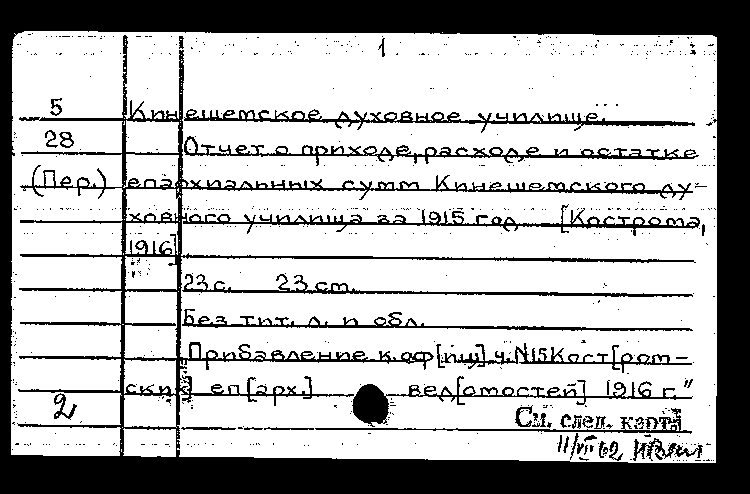 1
5 Кинешемское духовное училище.
28 Отчет о приходе, расходе и остатке
(Пер.) епархиальных сумм Кинешемского ду-
ховного училища за 1915 год [Кострома,
1916]
23 с. 23 ст.
Без тит. л. и обл.
"Прибавление к оф[иц] ч. N15 Кост[ром-
ских] еп[арх.] вед[омостей] 1916 г."
2
См. след. карт.
11/VII 62